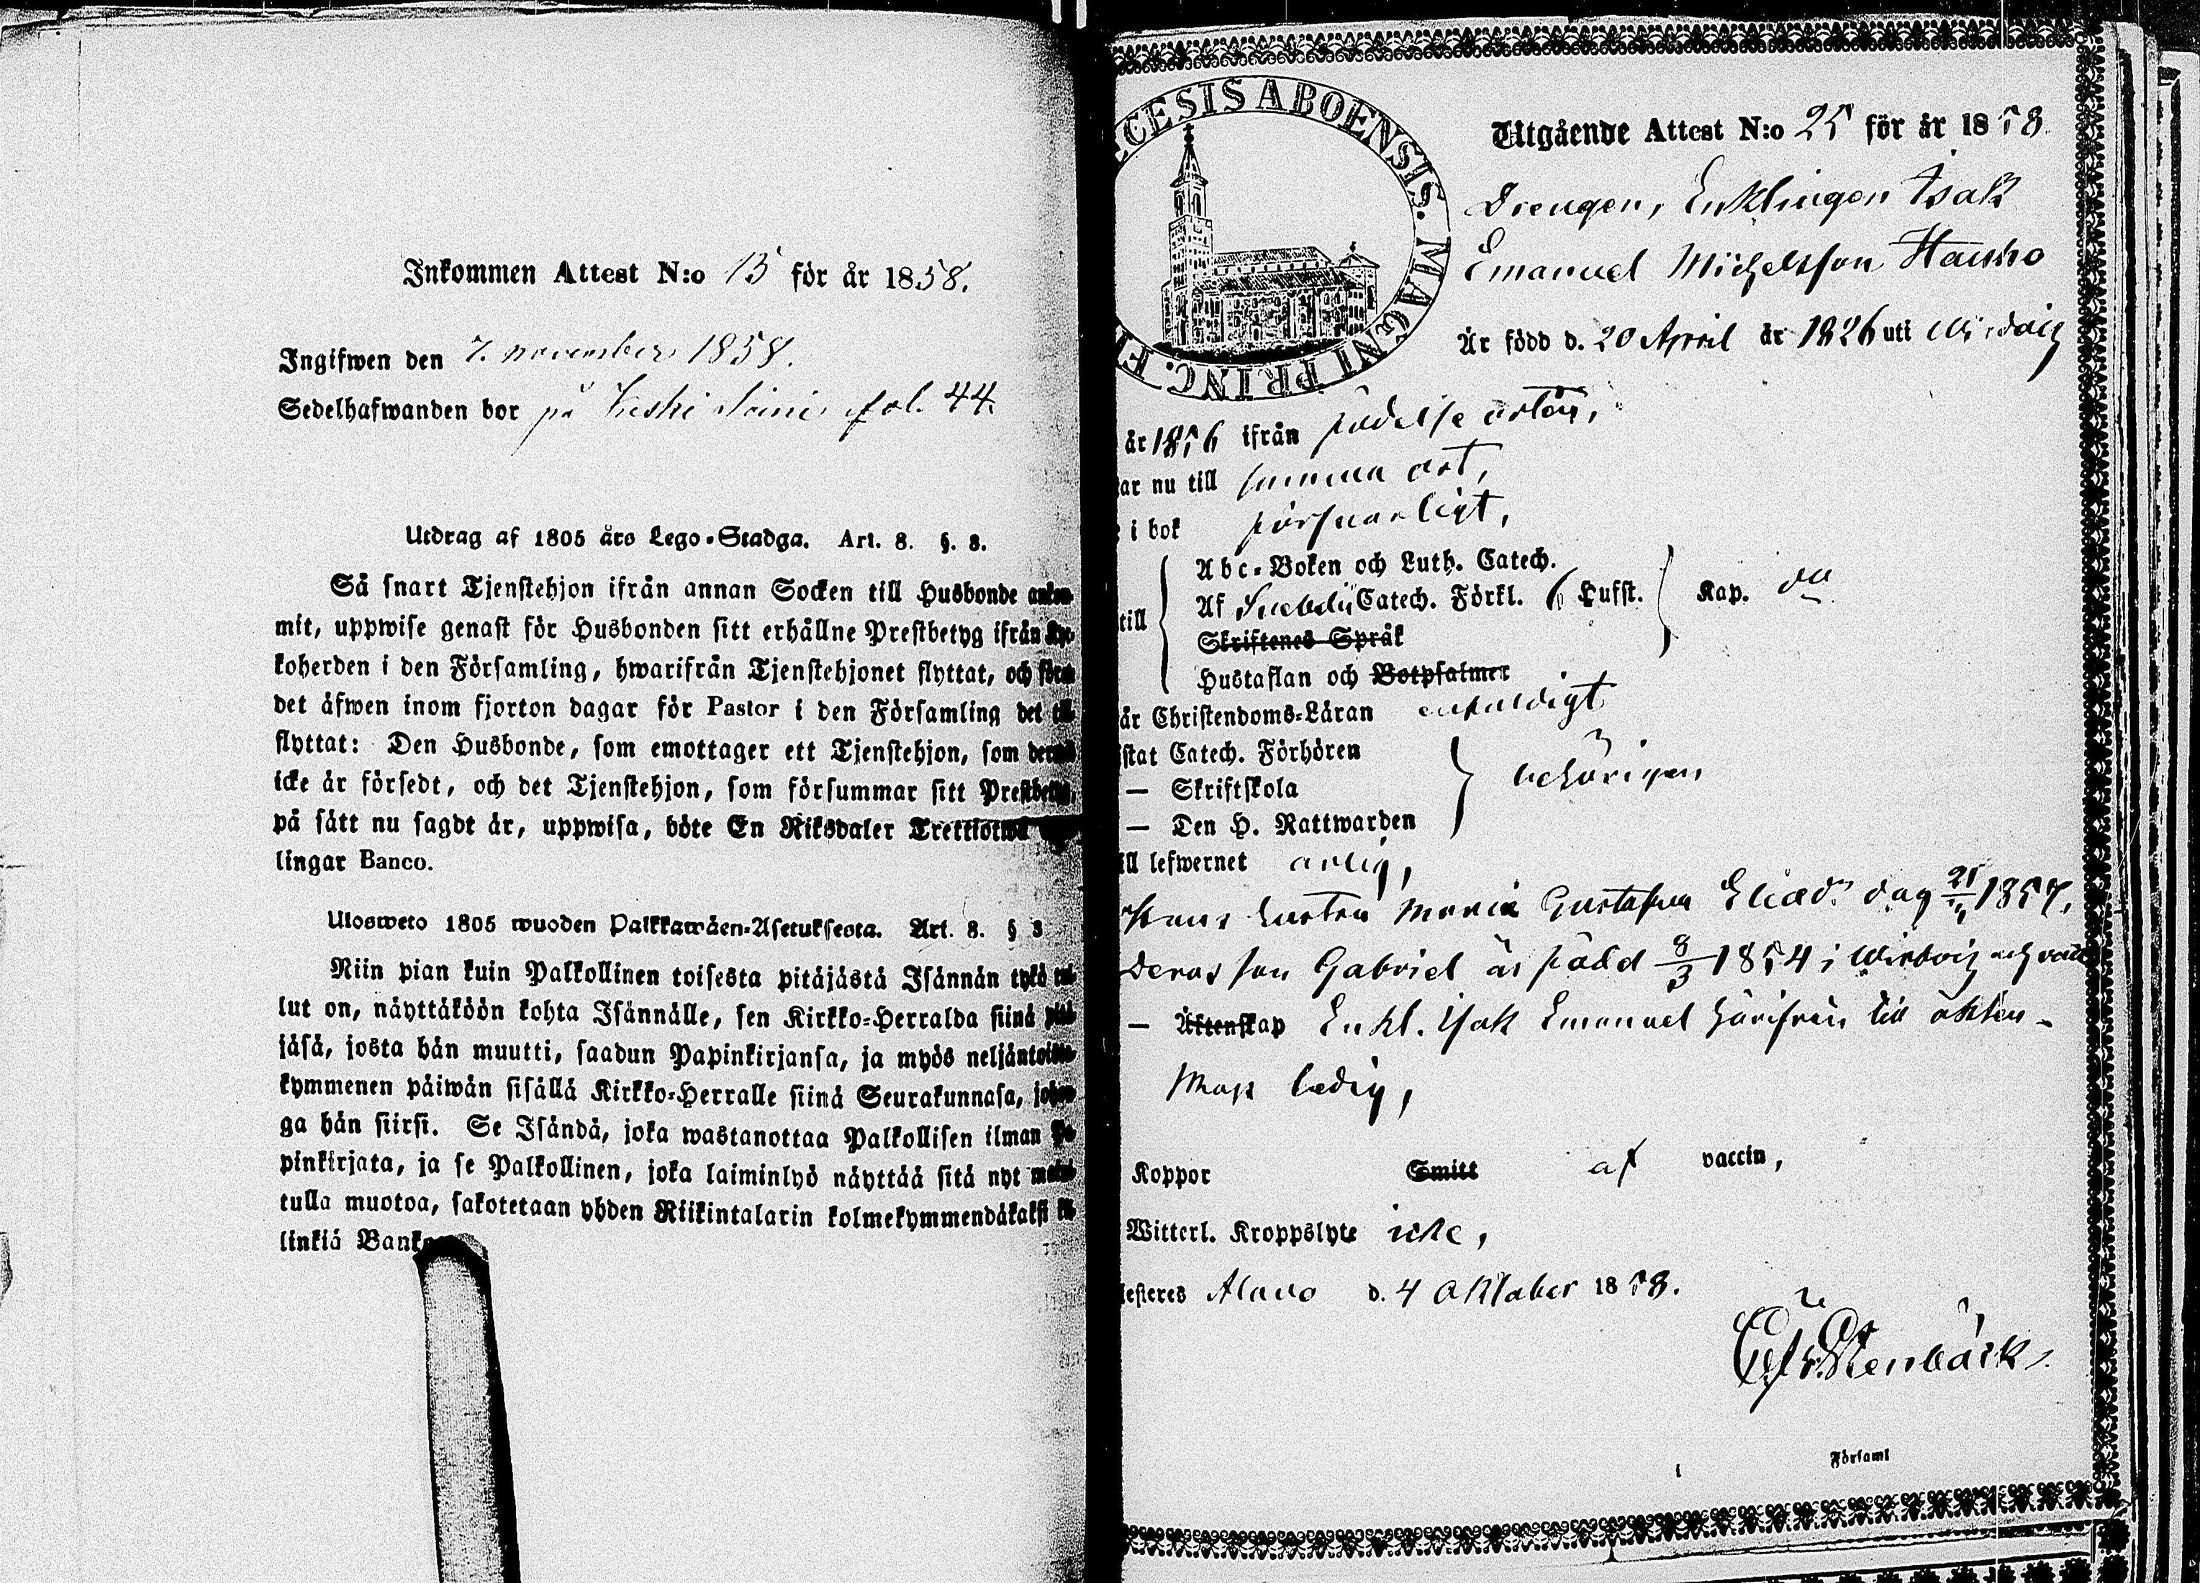 Inkommen Attest N:o 15 för år 1858.
Ingifwen den 7. november 1858.
Sedelhafwanden bor på fol. 44.
Utdrag af 1805 års Lego-Stadga. Art. 8. §. 8.
Så snart Tjenstehjon ifrån annan Socken till Husbonde
mit, uppwise genast för Husbonden sitt erhållne Prestbetyg ifrån
koherden i den Församling, hwarifrån Tjenstehjonet flyttat, och
det äfwen inom fjorton dagar för Pastor i den Församling det
flyttat: Den Husbonde, som emottager ett Tjenstehjon, som
icke är försedt, och det Tjenstehjon, som försummar sitt
på sätt nu sagdt är, uppwisa, böte En Riksdaler
lingar Banco.
Ulosweto 1805 wuoden Palkkawäen-Asetuksesta. Art. 8. § 8
Niin pian kuin Palkollinen toisesta pitäjästä Isännän tykö
lut on, näyttäköön kohta Isännälle, sen Kirkko-Herralda siinä
jäsä, josta hän muutti, saadun Papinkirjansa, ja myös
kymmenen päiwän sisällä Kirkko-Herralle siinä Seurakunnasa,
ga hän siirsi. Se Isändä, joka wastanottaa Palkollisen ilman
pinkirjata, ja se Palkollinen, joka laiminlyö näyttää sitä nyt
tulla muotoa, sakotetaan yhden Riikintalarin kolmekymmendäkaksi
linkiä
CESIS ABOENSIS. MAGNI PRINC.
Utgående Attest N:o 25 för år 1858.
Drengen, Enklingen Isak
Emanuel Michelsson
Är född d. 20 April år 1826 uti
år 1856 ifrån födelse orten,
ar nu till samma ort,
i bok försvarligt,
till Abc-Boken och Luth. Catech.
Af Catech. Förkl. 6 Hufst. Kap.
Skriftenes Språk
Hustaflan och Botpsalmer
år Christendoms-Läran enfaldigt
stat Catech. Förhören
— Skriftskola behörigen
— Den H. Nattwarden
ill lefwernet ärlig,
Hans hustru Maria Gustafva 1857,
Deras son Gabriel är född 8/3 1854 i och
— Äktenskap Enkl. Isak Emanuel härifrån till äkten-
skap ledig,
Koppor Smitt af vaccin,
Witterl. Kroppslyte icke,
Alavo d. 4 Oktober 1858.
Stenbäck
Församl